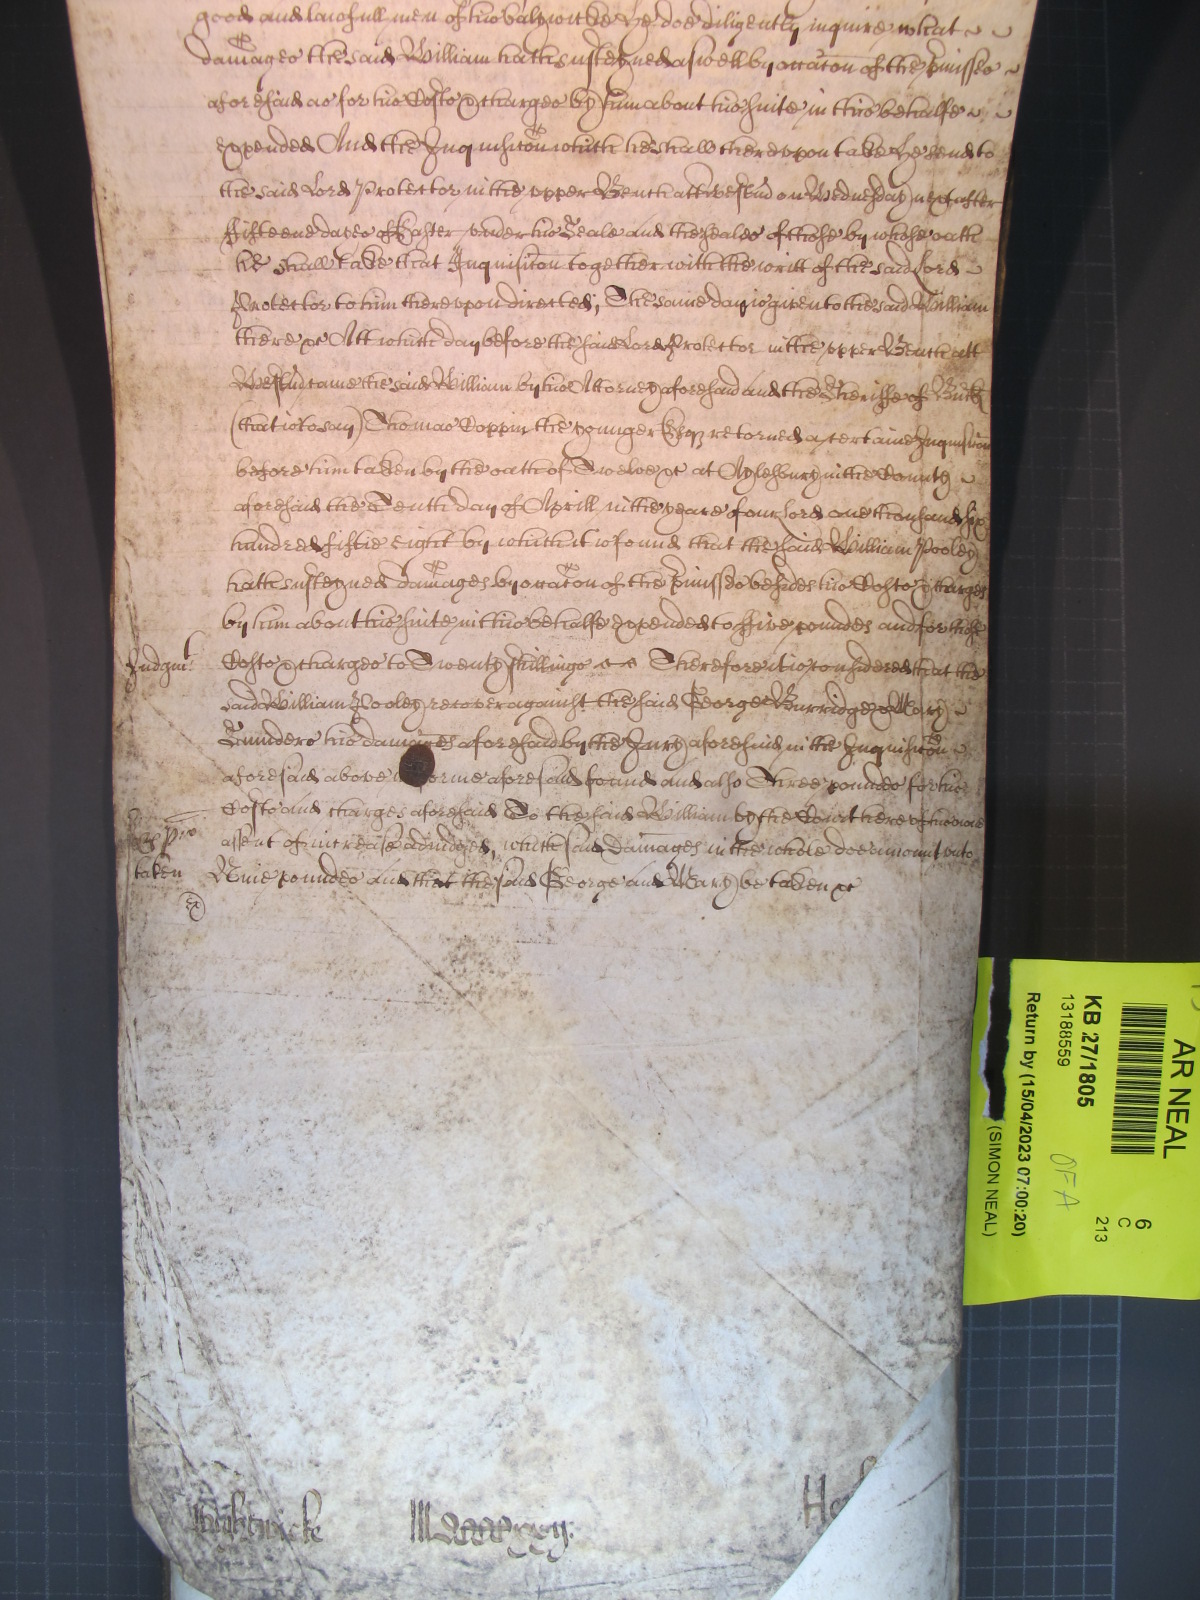 good and lawfull men of his balywicke he doe diligently inquire what
damages the said William hath susteyned aswell by occac̃on of the p̃misses
aforesaid as for his Costs & charges by him about his suite in this behalfe
expended And the Inquisic̃on which he shall thereupon take he send to
the said Lord Protector in the upper Bench att Westm̃ on Wednesday next after
fifteene dayes of Easter under his Seale and the seales of those by whose oath
he shall take that Inquisic̃on together with the writt of the said Lord
Protector to him thereupon directed, The same day is given to the said William
there &c Att which day before the said Lord Protector in the upper Bench att
Westm̃ came the said William by his Attorney aforesaid and the Sheriffe of Buck
(that is to say) Thomas Coppin the younger Esqz returned a certaine Inquisic̃on
before him taken by the oath of Twelve &c at Aylesbury in the County
aforesaid the Tenth day of Aprill in the yeare of our lord one thousand six
hundred fiftie eight by which it is found that the said William Pooley
hath susteyned dam̃ages by occac̃on of the p̃misses besides his Costs & charges
by him about his suite in this behalfe expended to ffive poundes and for those
Judgmt Costs & charges to Twenty shillings Therefore it is considered that the
said William Pooley recover against the said George Burridge & Mary
Saunders his damages aforesaid by the Jury aforesaid in the Inquisic̃on
aforesaid above in forme aforesaid found and also Three poundes for his
Costs and charges aforesaid To the said William by the Court here of his owne
assent of increase adjudged, which said damages in the whole doe amount unto
taken Nine poundes And that the said George and Mary be taken &c
AR NEAL
KB 27/1805
13188559
Return by (15/04/2023 07:00:20)
(SIMON NEAL)
OFA
6
C
213